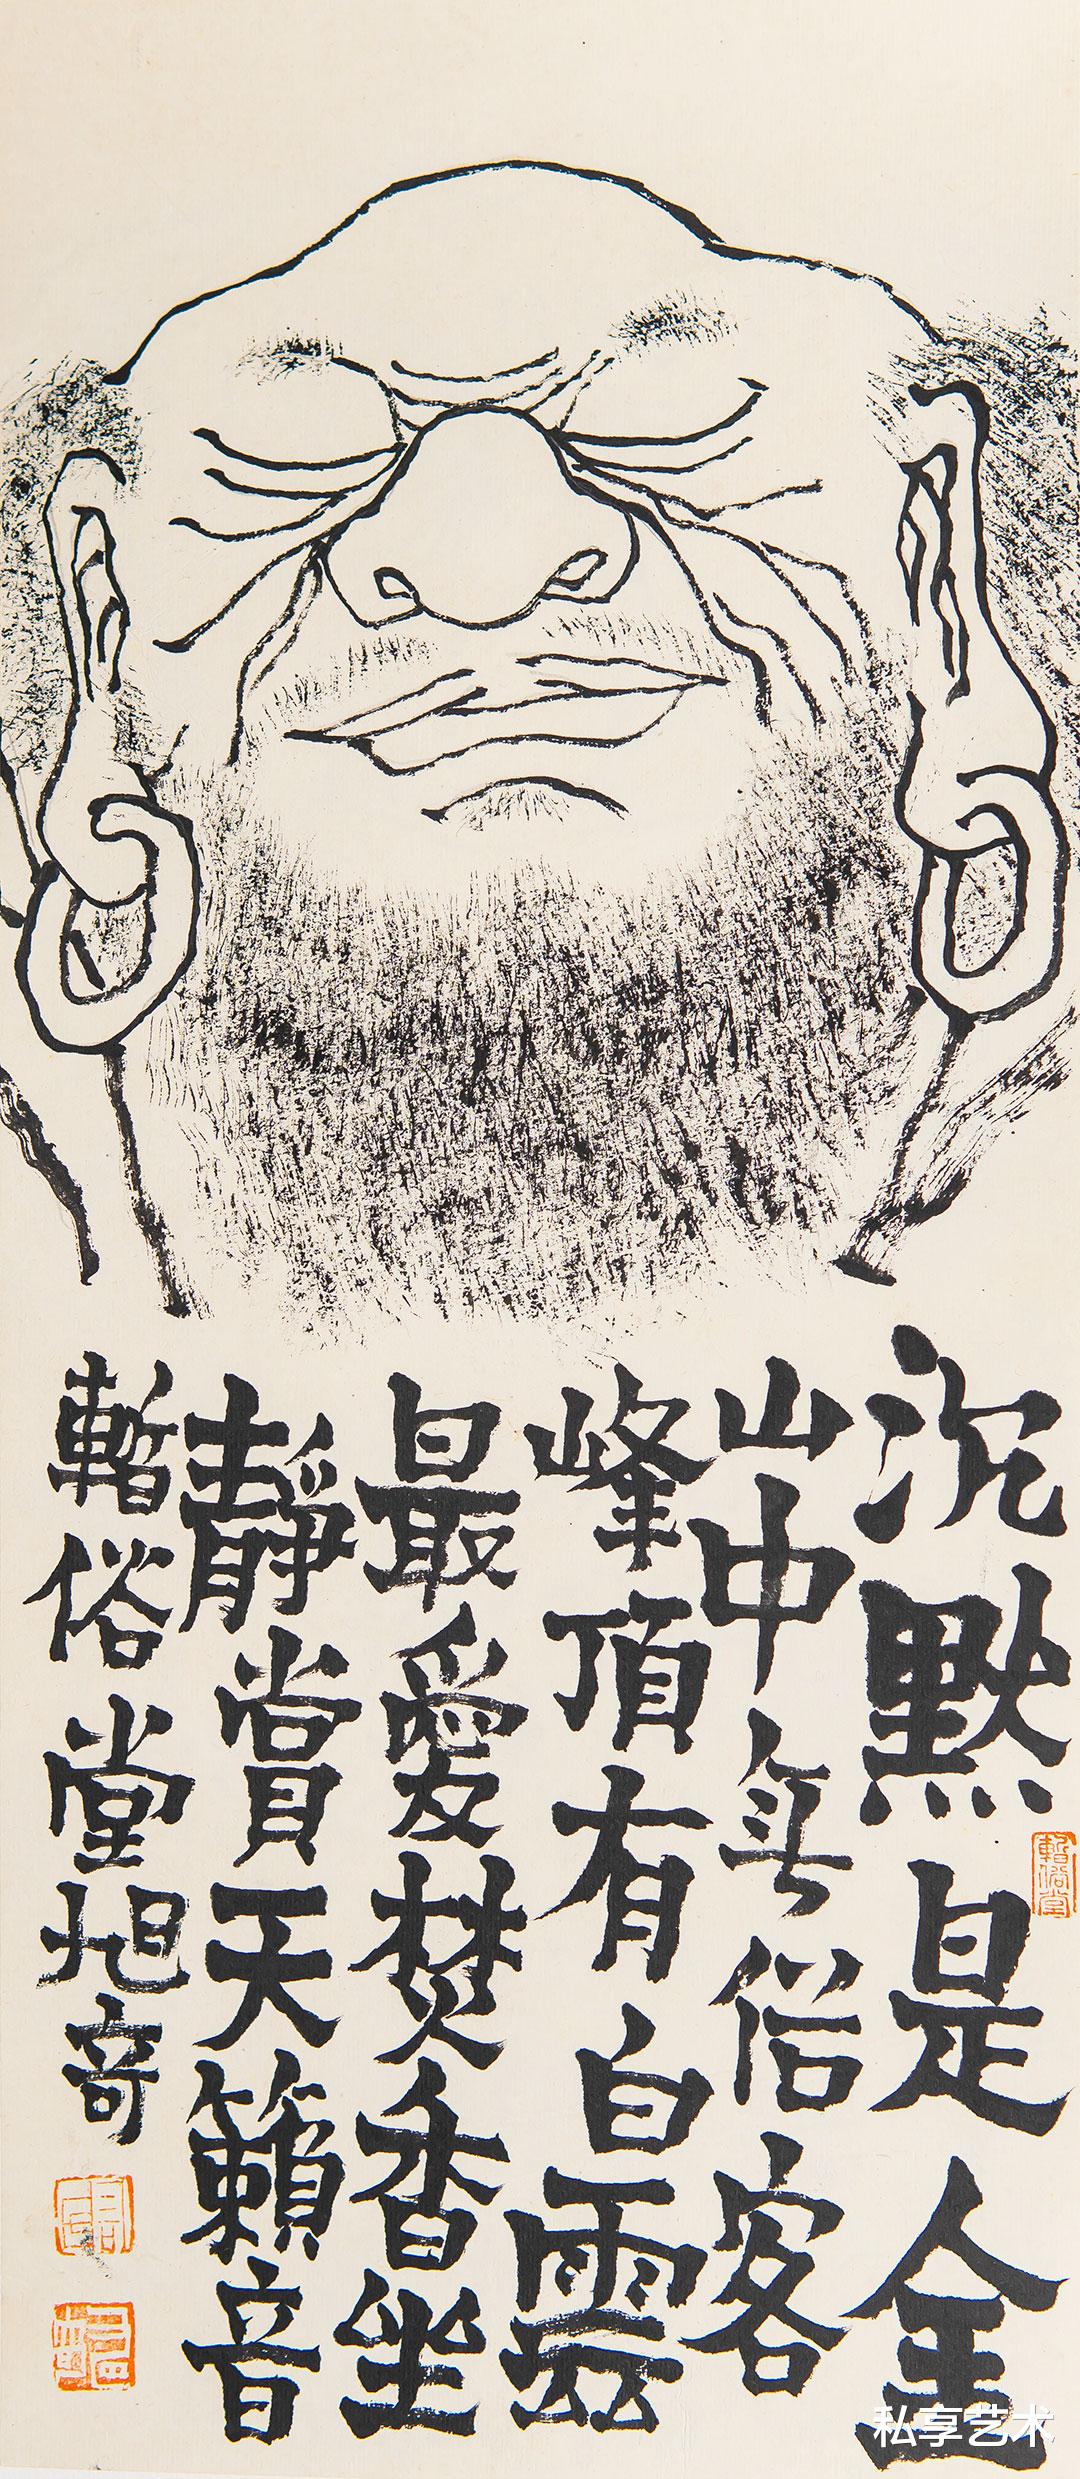 沉默是金
山中無俗客
峰頂有白雲
最愛焚香坐
靜賞天籟音
暫俗堂旭奇
暫俗堂
私享艺术